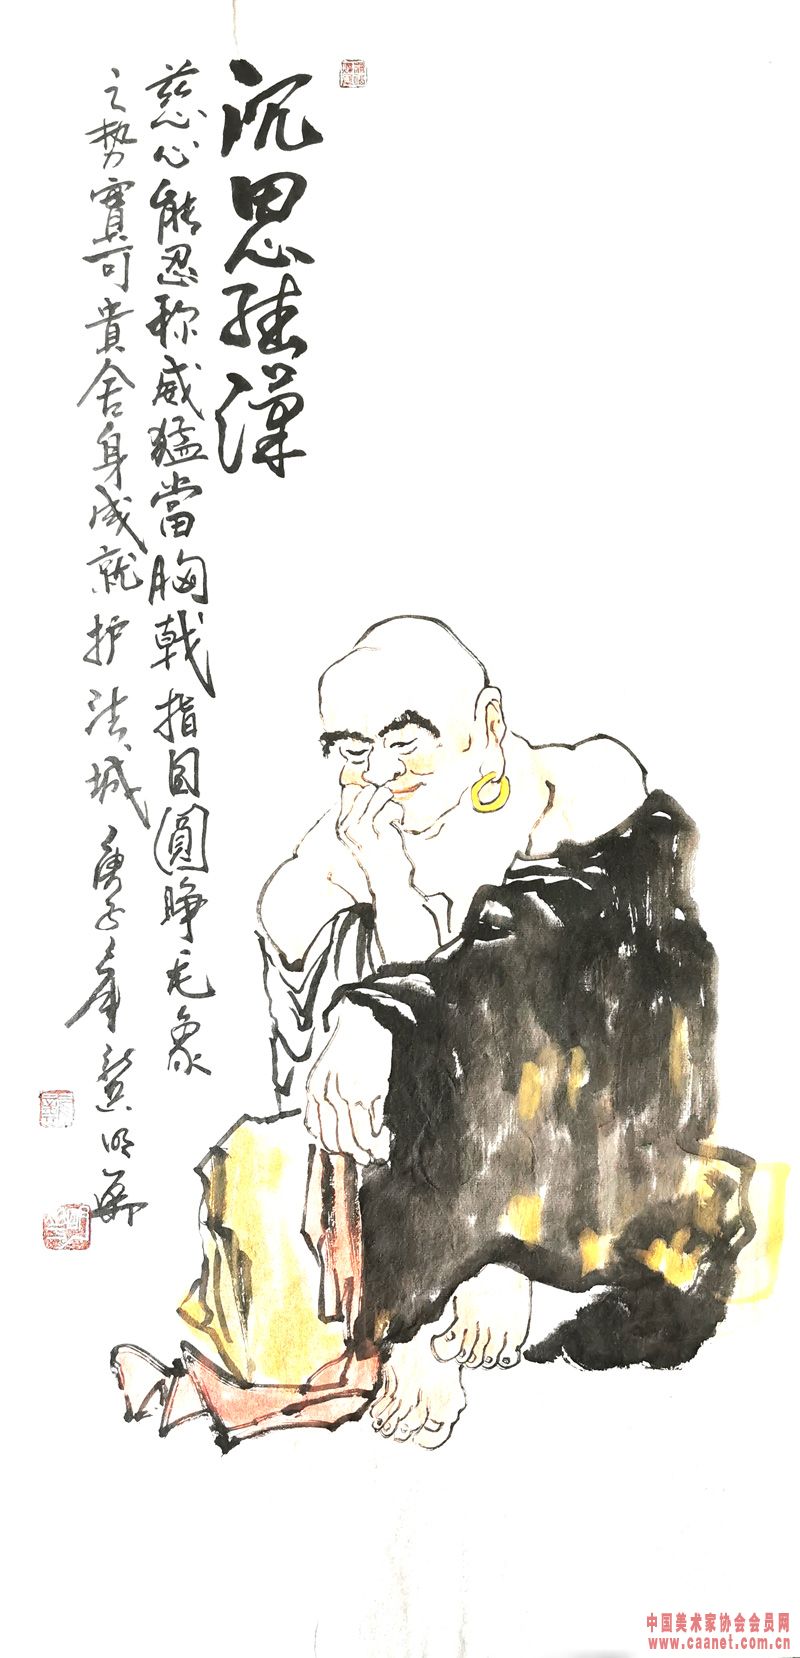 沉思羅漢
慈心能忍称威猛當胸戟指目圓睁龙象
之势實可貴舍身成就护法城 庚子年 龔明
中国美术家协会会员网
www.caanet.com.cn